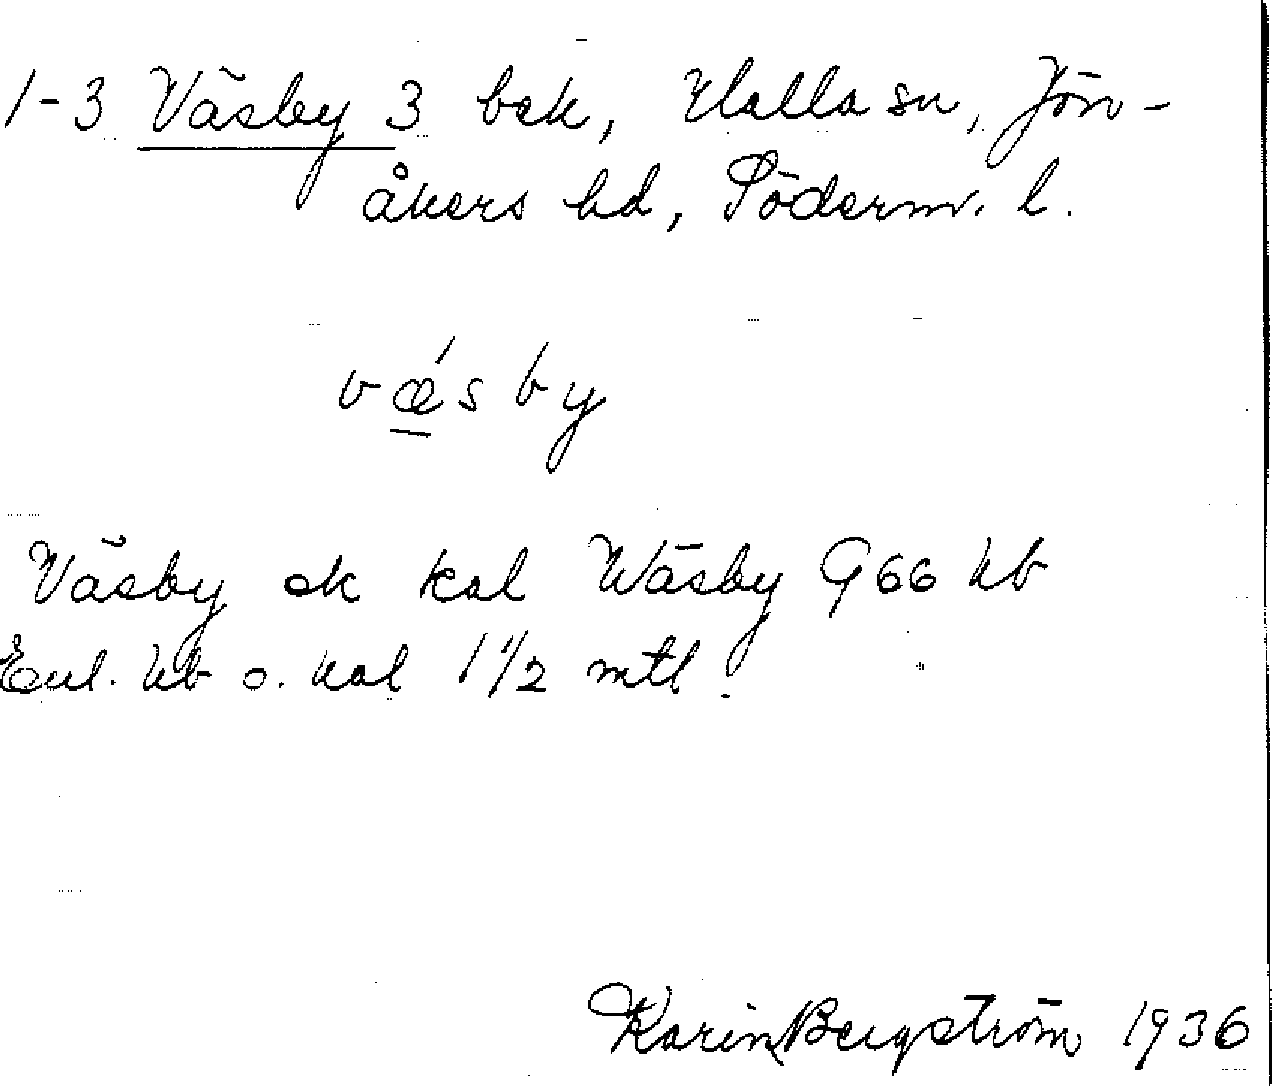 1-3 Väsby 3 bek, Halla sn, Jön-
åkers hd, Söderm. l.
vǽsby
Väsby ek kal Wäsby G66 kb
Enl. kb o. kal 1 1/2 mtl.
Karin Bergström 1936